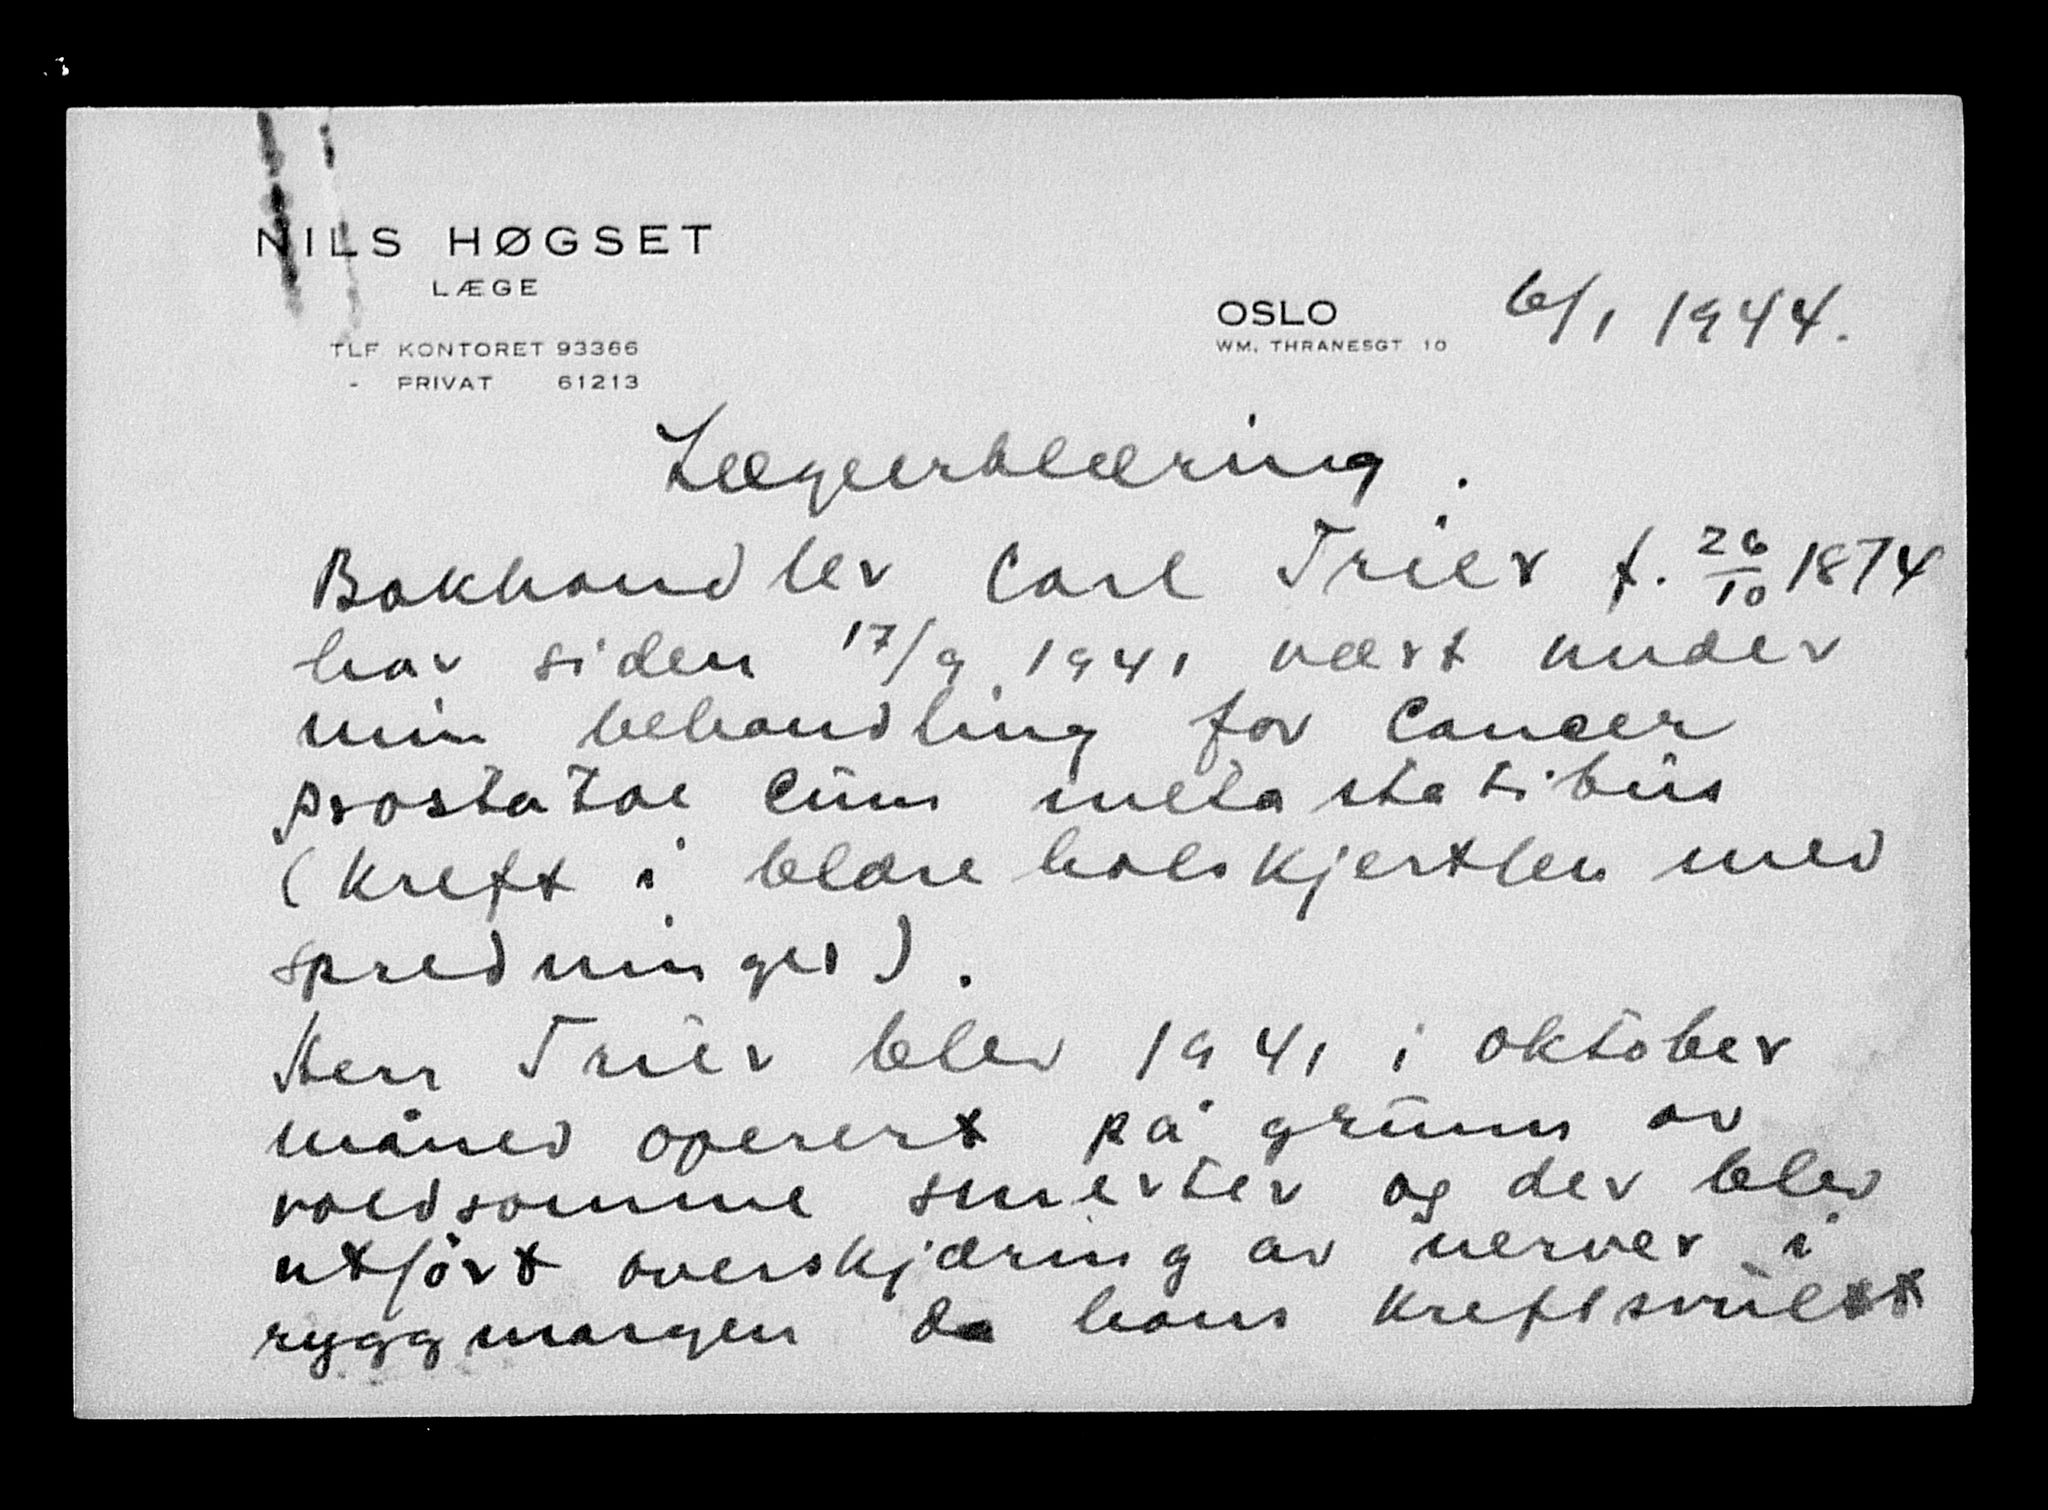 NILS HØGSET
LÆGE
TLF. KONTORET 93366
- PRIVAT 61213
OSLO 6/1 1944.
WM. THRANESGT 10
Lægeerklæring.
Bokhandler Carl Trier f. 26/10 1874
har siden 17/9 1941 vært under
min behandling for Cancer
prostatae cum metastatibus
(Kreft i blærehalskjertlen med
spredninger).
Herr Trier blev 1941 i oktober
måned operert på grunn av
voldsomme smerter og der blev
utført overskjæring av nerver i
ryggmargen da hans kreftsvulst